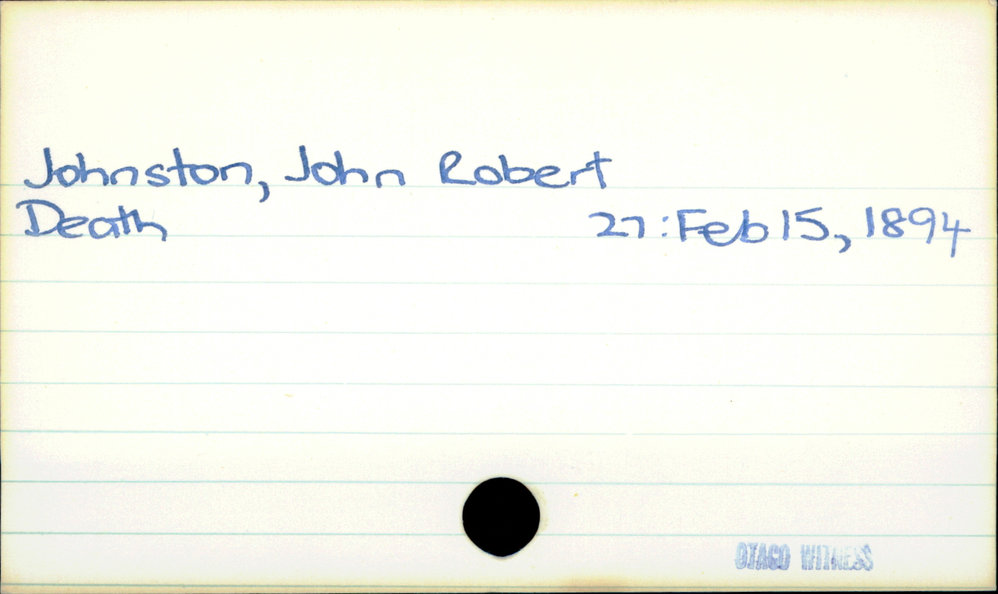 Johnston, John Robert
Death 27:Feb 15, 1894
OTAGO WITNESS